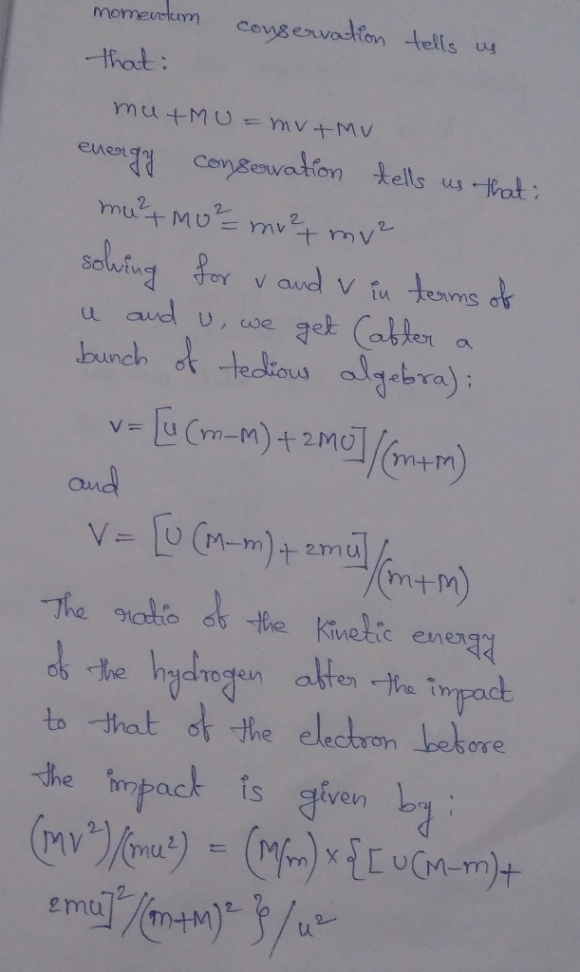 momentum conservation tells us
that:
mu + MU = mv + MV
energy conservation tells us that:
mu² + MU² = mv² + mv²
solving for v and V in terms of
u and U, we get (after a
bunch of tedious algebra):
v = [u(m-M) + 2MU]/(m+M)
and
V = [U(M-m) + 2mu]/(m+M)
The ratio of the Kinetic energy
of the hydrogen after the impact
to that of the electron before
the impact is given by:
(MV²)/(mu²) = (M/m) × {[U(M-m) +
2mu]²/(m+M)² }/u²